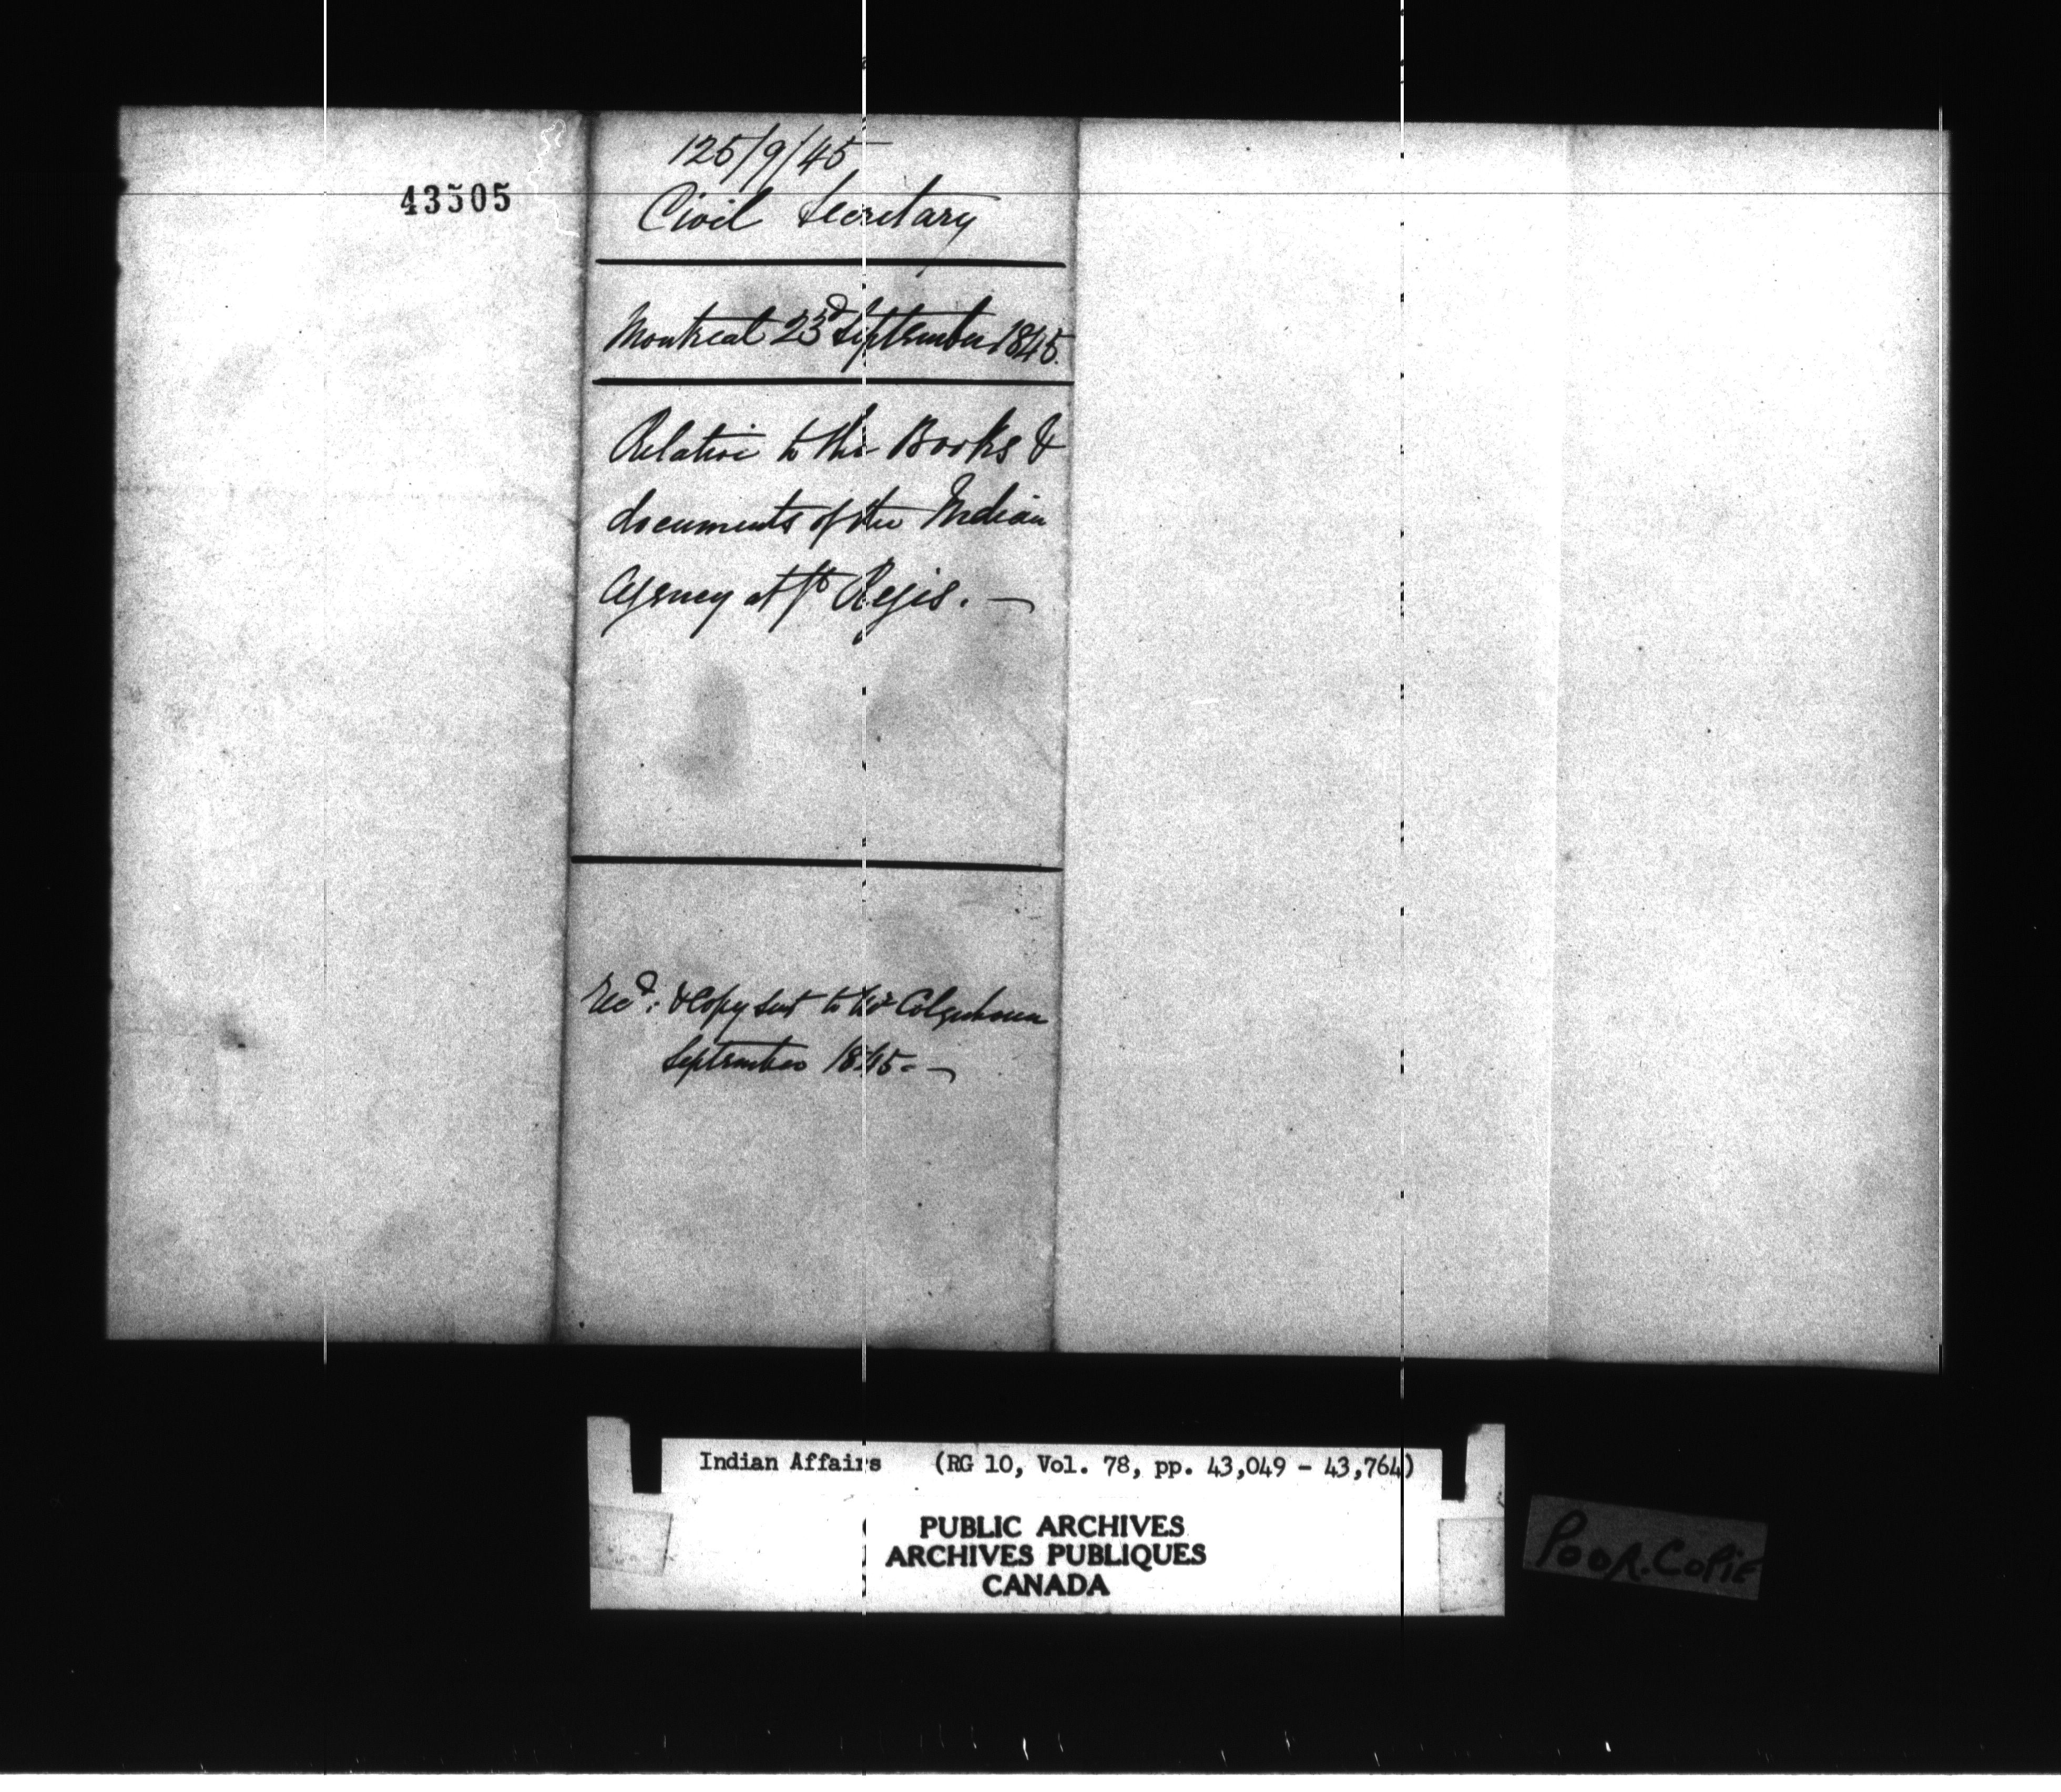 43505
125/9/45
Civil Secretary
Montreal 23d September 1845.
Relative to the Books &
documents of the Indian
Agency at St Regis. —
Recd: & Copy sent to Mr Colquhoun
September 1845 - —
Indian Affairs (RG 10, Vol. 78, pp. 43,049 - 43,764)
PUBLIC ARCHIVES
ARCHIVES PUBLIQUES
CANADA
POOR. COPIE